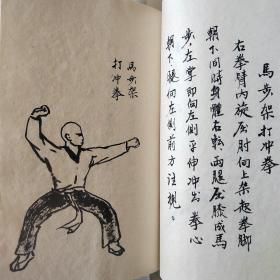 馬步架打冲拳
右拳臂内旋屈肘向上架起拳脚
朝下同時身體右転両腿屈膝成馬
步,左掌即向左側平伸冲出拳心
朝下,眼向左側前方注視。
馬步架
打冲拳